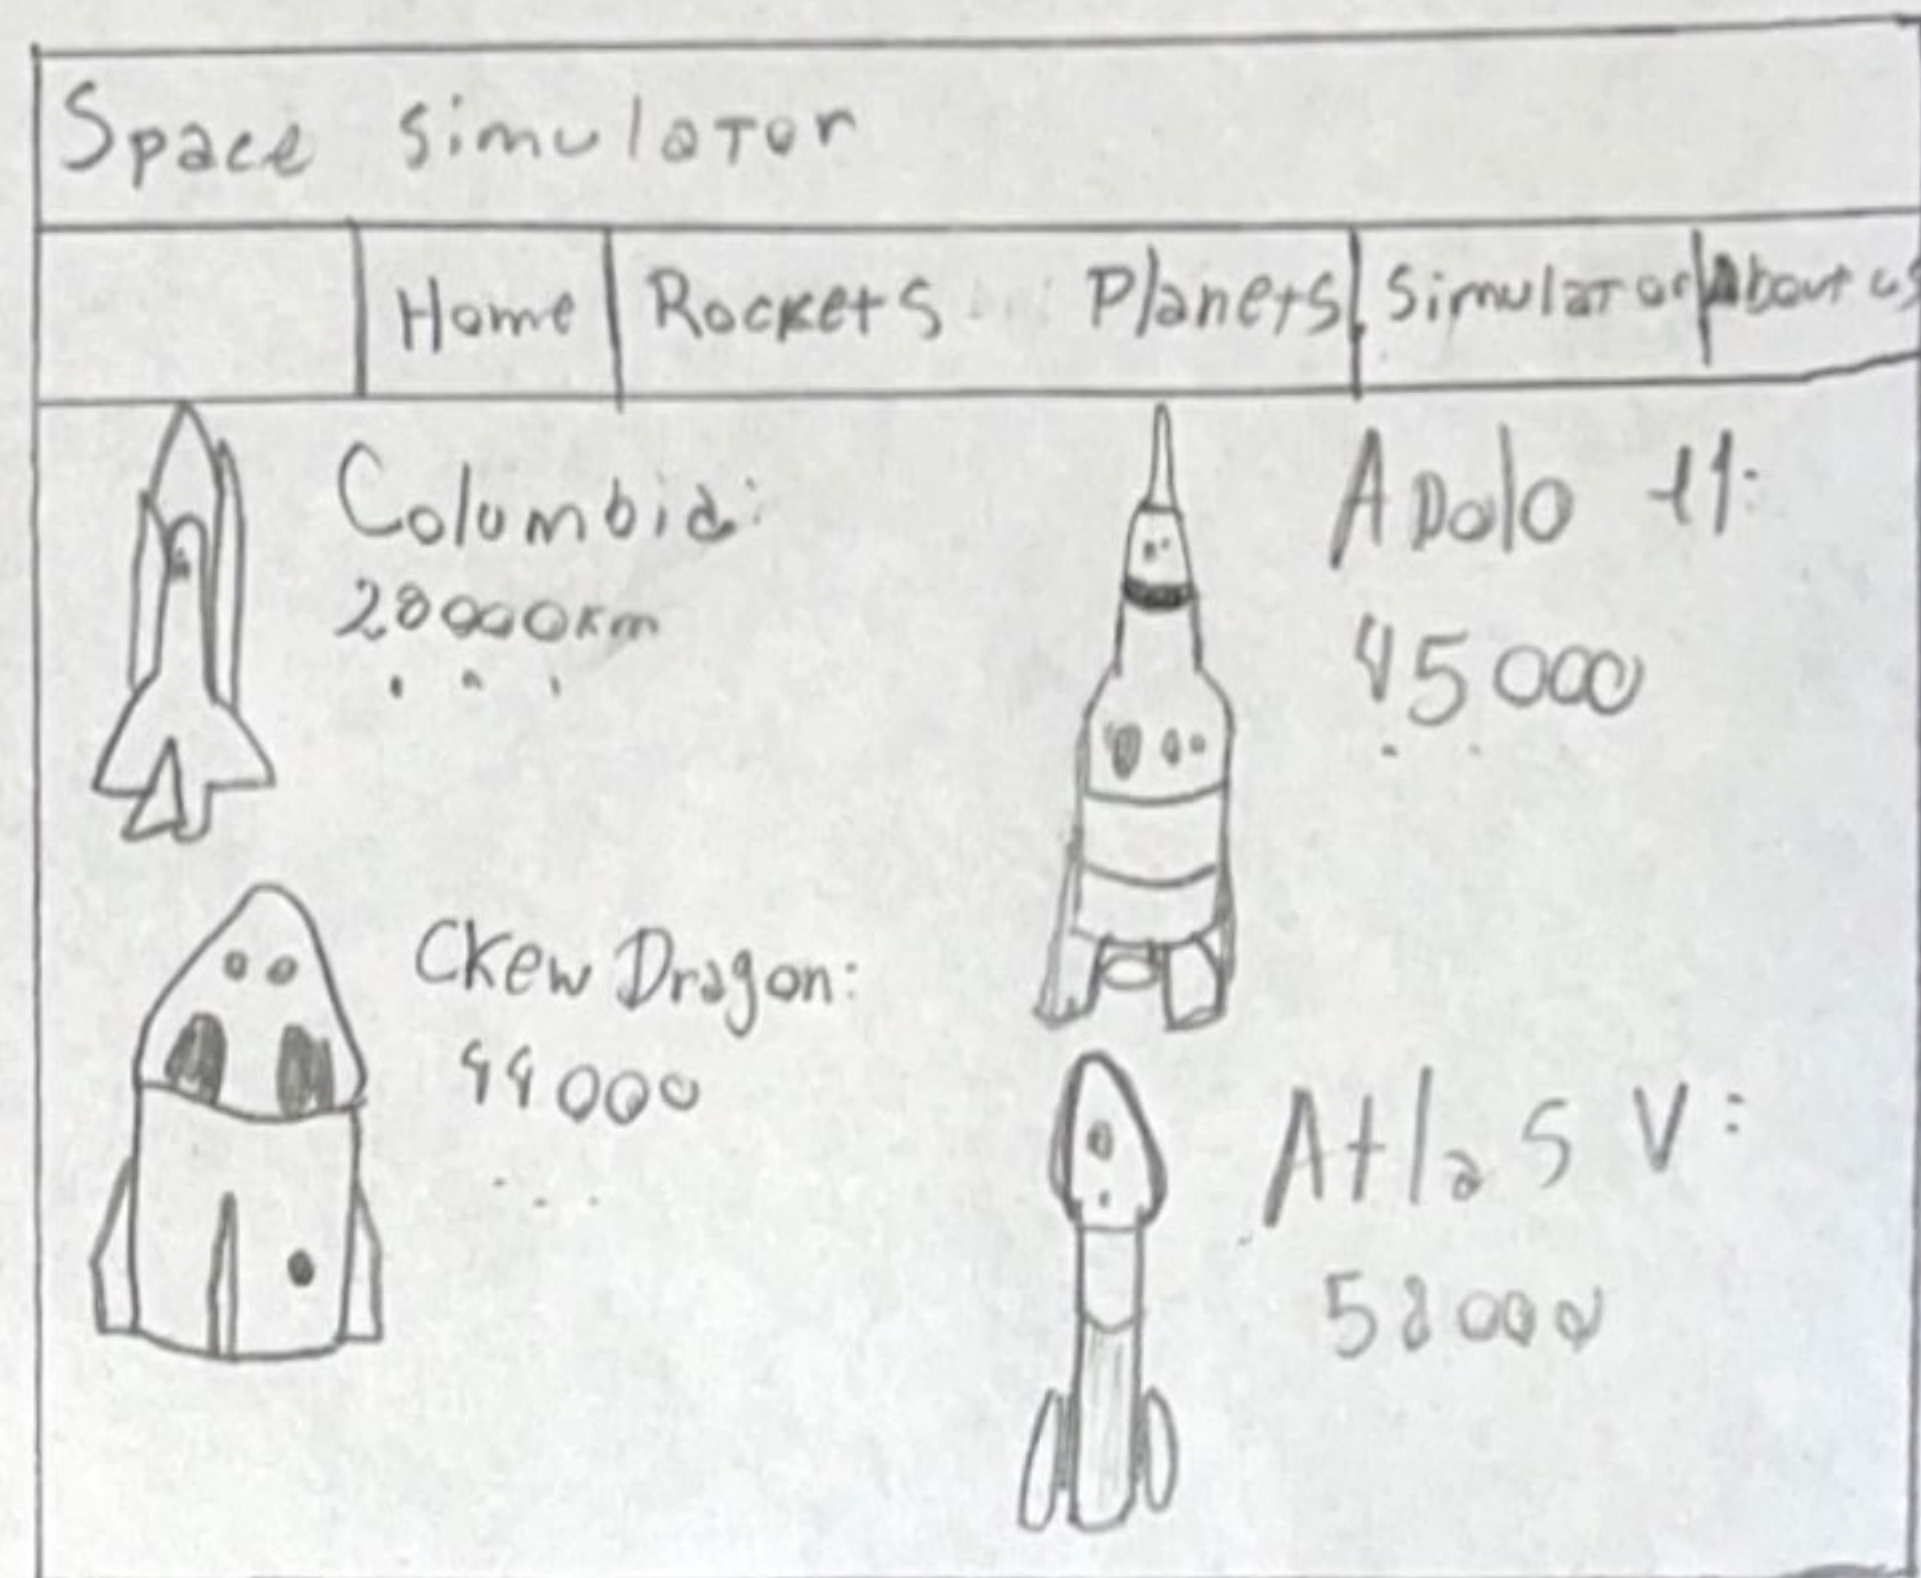 Space simulator
Home Rockets Planets Simulator About us
Columbia:
28000km
. . .
Apolo 11:
45000
Ckew Dragon:
44000
. . .
Atlas V:
58000